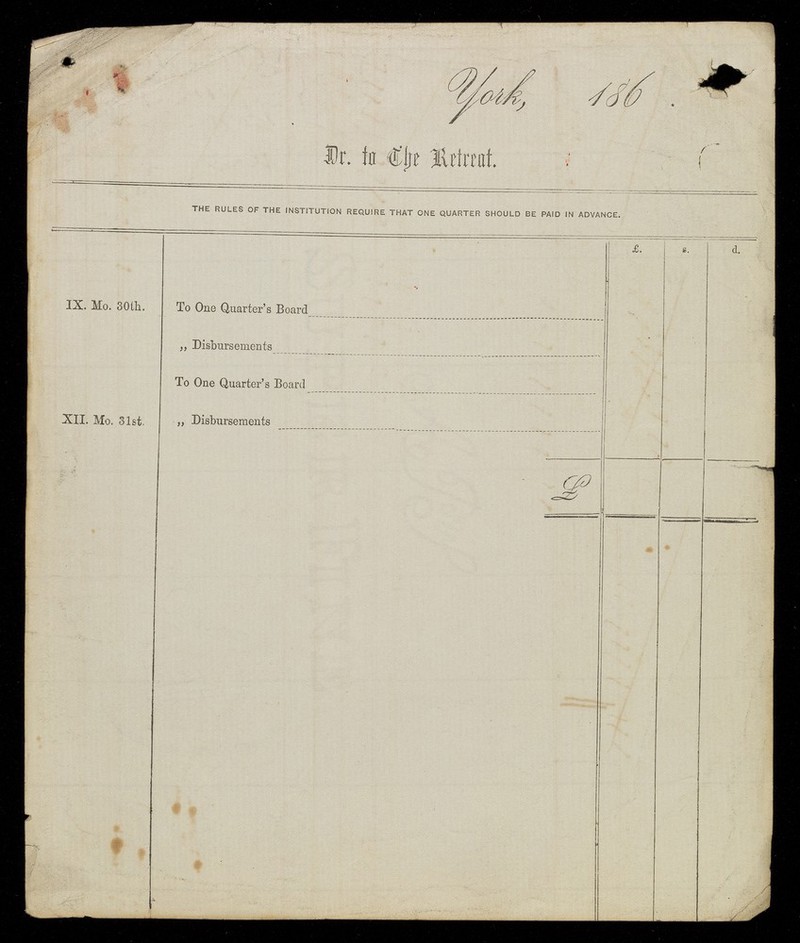 York, 186 .
Dr. to The Retreat.
THE RULES OF THE INSTITUTION REQUIRE THAT ONE QUARTER SHOULD BE PAID IN ADVANCE.
£. s. d.
IX. Mo. 30th. To One Quarter's Board
„ Disbursements
To One Quarter's Board
XII. Mo. 31st. „ Disbursements
£